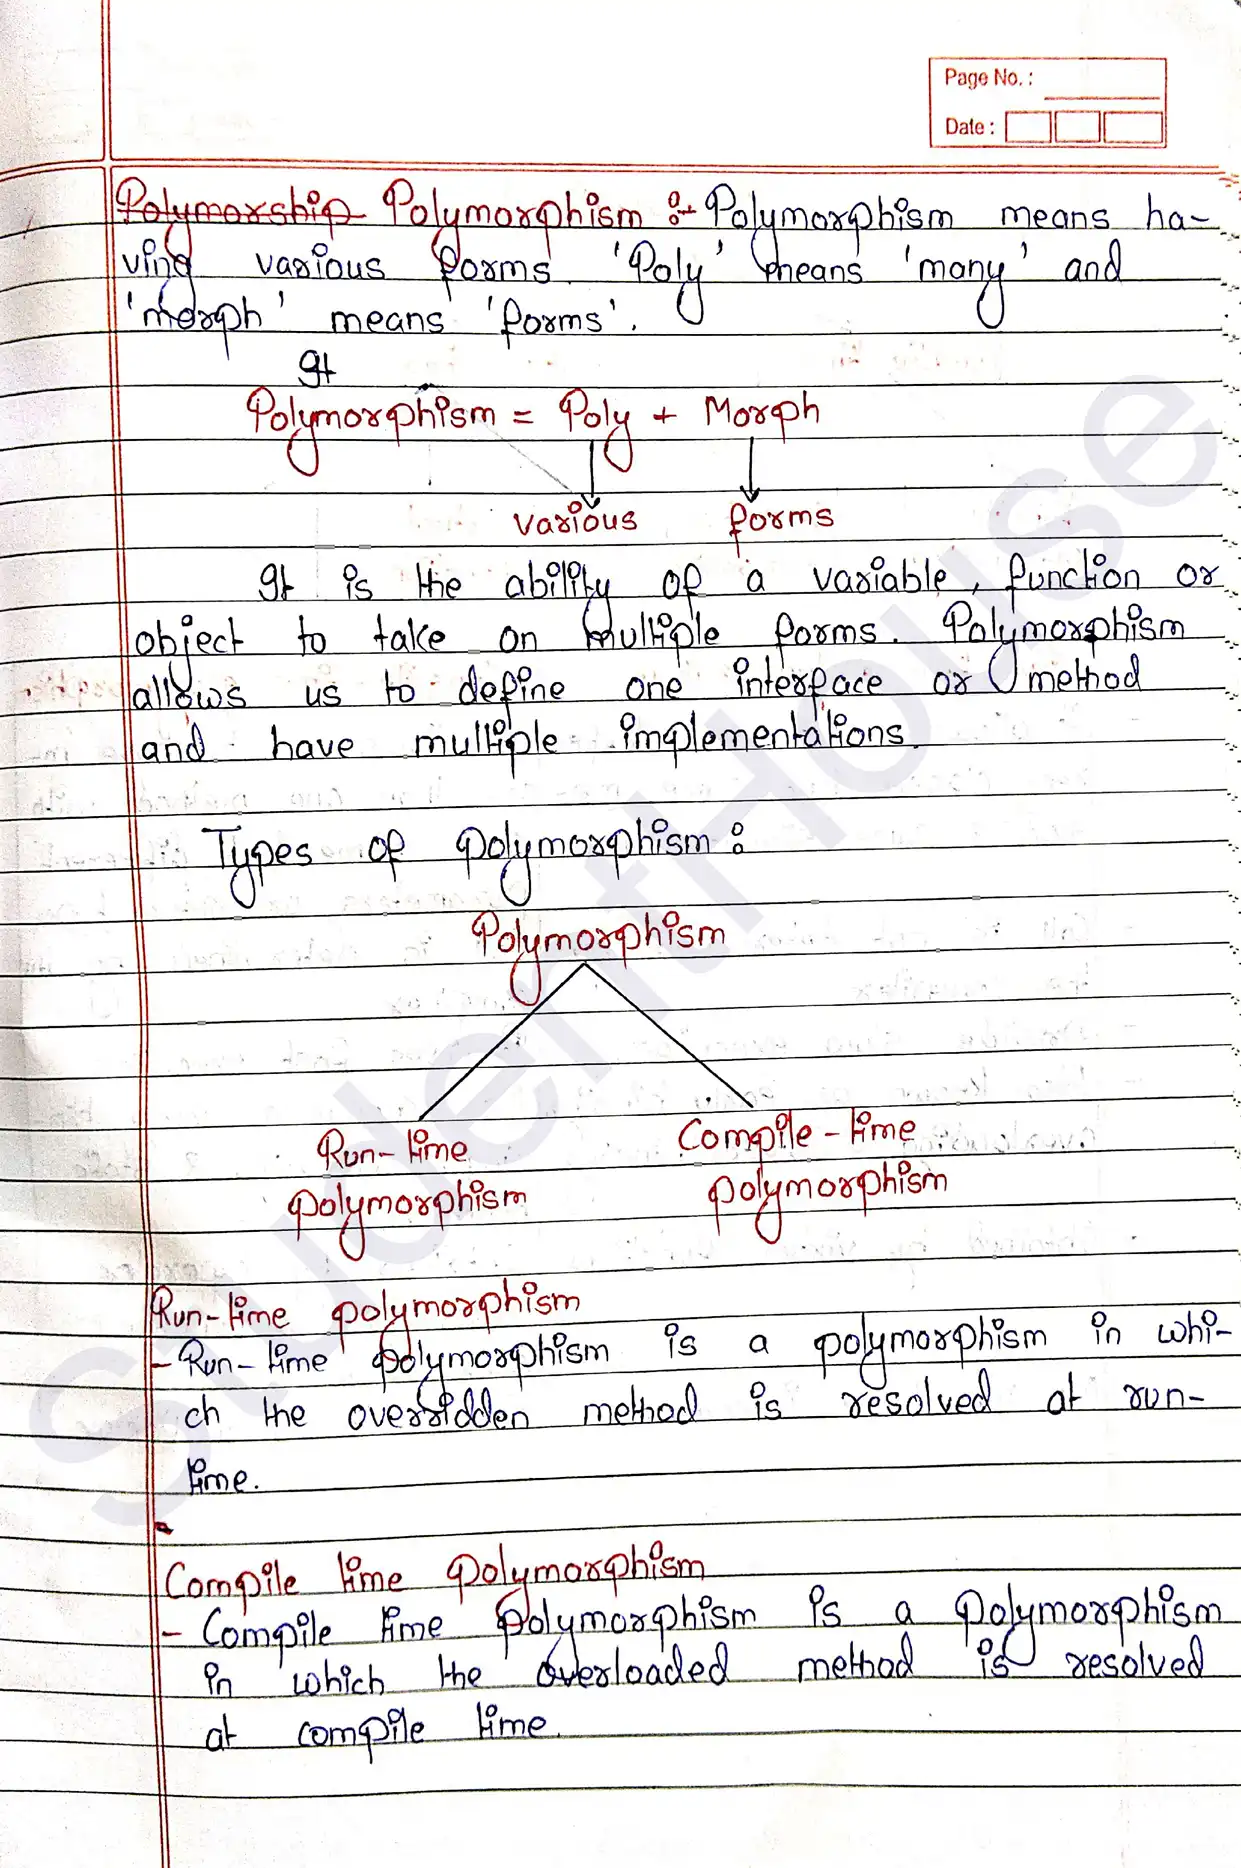 Page No. :
Date :
Polymorship Polymorphism :- Polymorphism means ha-
ving various forms. 'Poly' means 'many' and
'morph' means 'forms'.
It
Polymorphism = Poly + Morph
various forms
It is the ability of a variable, function or
object to take on multiple forms. Polymorphism
allows us to define one interface or method
and have multiple implementations.
Types of polymorphism :
Polymorphism
Run-time Compile-time
polymorphism polymorphism
Run-time polymorphism
- Run-time polymorphism is a polymorphism in whi-
ch the overridden method is resolved at run-
time.
Compile time polymorphism
- Compile time polymorphism is a polymorphism
in which the overloaded method is resolved
at compile time.
StudentHouse